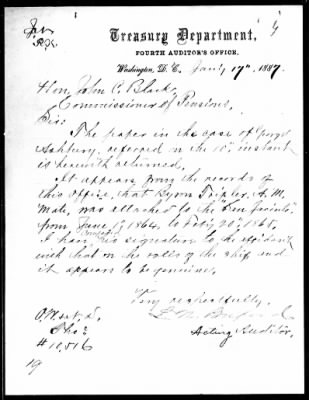 Treasury Department,
FOURTH AUDITOR'S OFFICE.
Washington, D. C. Jan'y 17", 1887.
Hon. John C. Black,
Commissioner of Pensions,
Sir:
The paper in the case of George
Ashbury, referred on the 10" instant
is herewith returned.
It appears from the records of
this office, that Byron Tripler, A. M.
Mate, was attached to the
from June 1, 1864, to Feb'y 20", 1865.
I have compared his signature to the affidavit
with that on the rolls of the ship and
it appears to be genuine.
Very respectfully,
Acting Auditor.
# 10,516
19